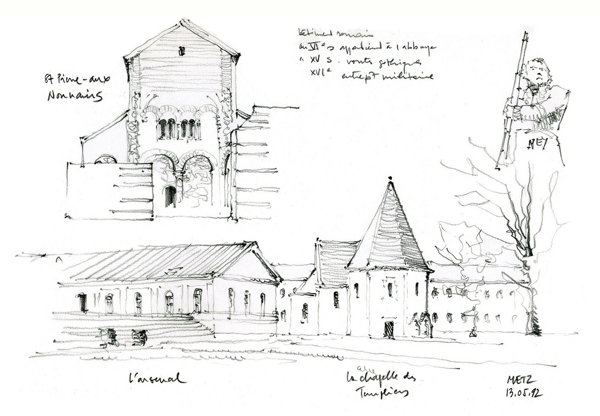 St Pierre-aux
Nonnains
bâtiment romain
au VIe s appartient à l'abbaye
" XV s. voute gothique
XVIe entrepôt militaire
NEY
L'arsenal
La chapelle des
Templiers
METZ
13.05.12